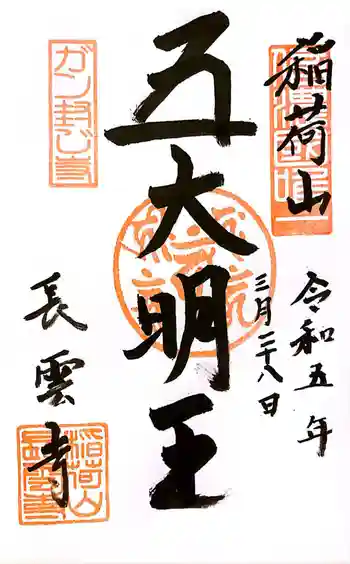 稲荷山
令和五年
三月二十八日
五大明王
ガン封じ寺
長雲寺
稲荷山
長雲寺